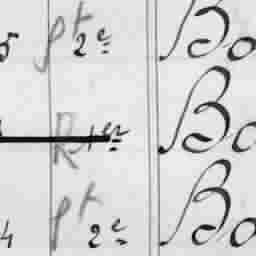 5 pt 2e Bo
R 1er Bo
4 pt 2e Bo